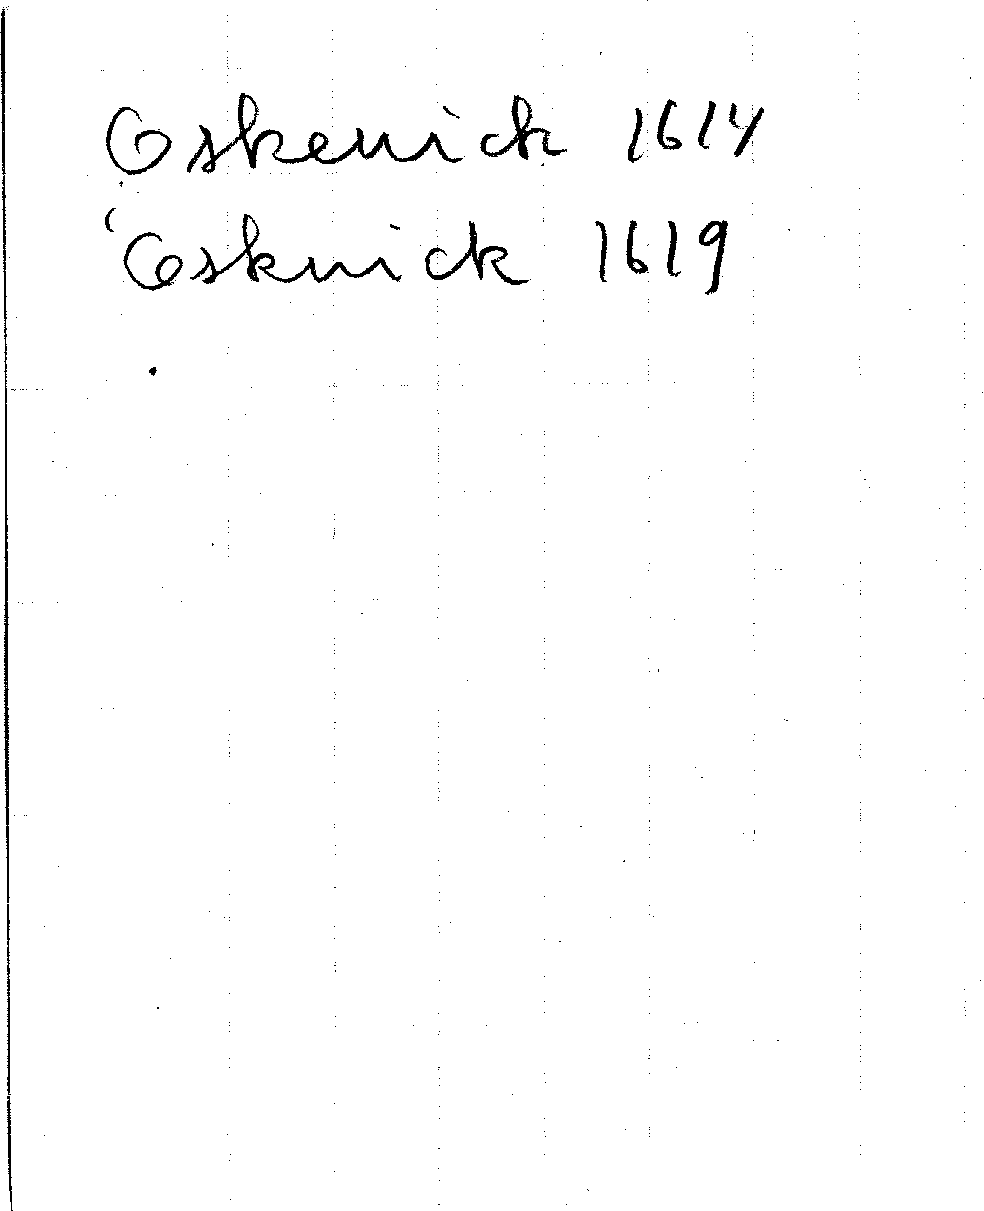 Oskenick 1614
Osknick 1619